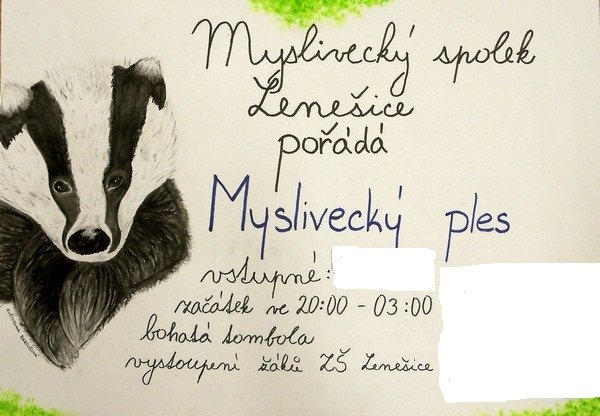 Myslivecký spolek
Lenešice
pořádá
Myslivecký ples
vstupné:
začátek ve 20:00 - 03:00
bohatá tombola
vystoupení žáků ZŠ Lenešice